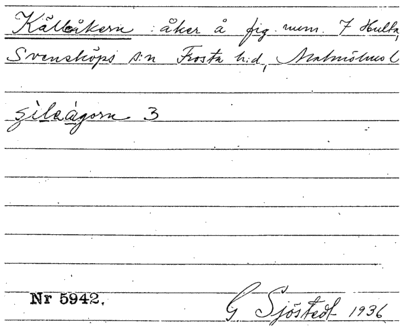 Källåkern : åker å fig. num. 7 Hulta,
Svensköps s:n Frosta h:d, Malmöhus l
3
Nr 5942.
G Sjöstedt 1936